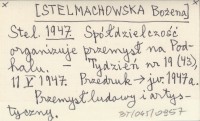 [STELMACHOWSKA Bożena]
Stel. 1947. Spółdzielczość
organizuje przemysł na Pod-
halu. – Tydzień nr 19 (43),
11 V 1947. Przedruk → jw. 1947a.
Przemysł ludowy i artys-
tyczny.
37/041/0957